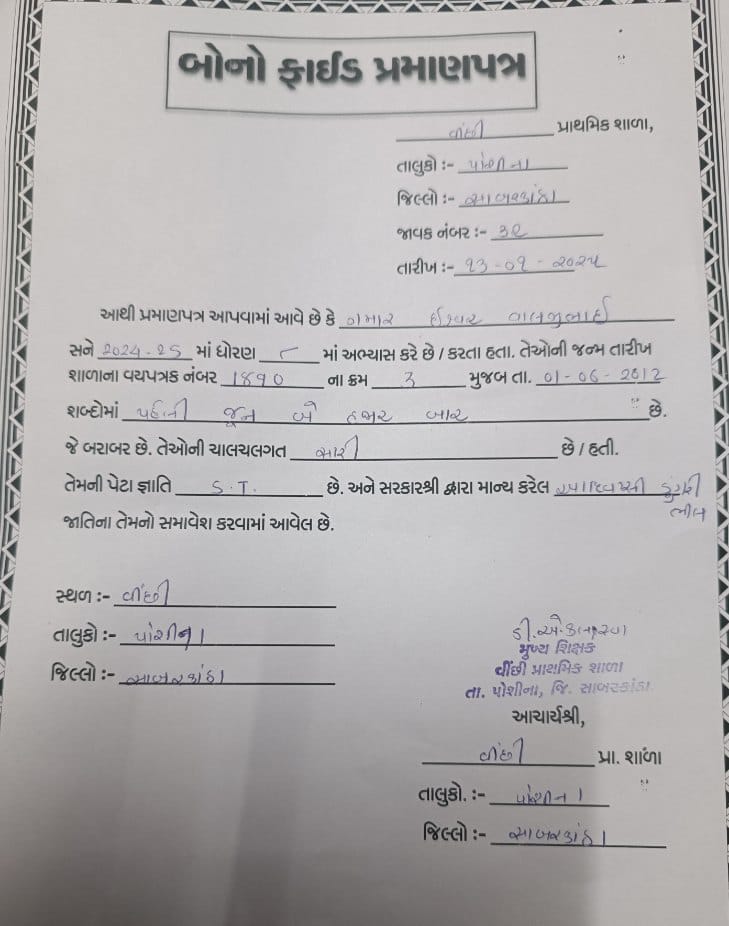 બોનો ફાઈડ પ્રમાણપત્ર
વીંછી પ્રાથમિક શાળા,
તાલુકો :- પોશીના
જિલ્લો :- સાબરકાંઠા
જાવક નંબર :- ૩૨
તારીખ :- ૧૩-૦૧-૨૦૨૫
આથી પ્રમાણપત્ર આપવામાં આવે છે કે ગમાર ઈશ્વર વાલજીભાઈ
સને ૨૦૨૪-૨૫ માં ધોરણ ૮ માં અભ્યાસ કરે છે / કરતા હતા. તેઓની જન્મ તારીખ
શાળાના વયપત્રક નંબર 1890 ના ક્રમ 3 મુજબ તા. 01-06-2012
શબ્દોમાં પહેલી જૂન બે હજાર બાર છે.
જે બરાબર છે. તેઓની ચાલચલગત સારી છે / હતી.
તેમની પેટા જ્ઞાતિ S.T. છે. અને સરકારશ્રી દ્વારા માન્ય કરેલ ડુંગરી
ભીલ
જાતિના તેમનો સમાવેશ કરવામાં આવેલ છે.
સ્થળ :- વીંછી
તાલુકો :- પોશીના
જિલ્લો :- સાબરકાંઠા
મુખ્ય શિક્ષક
વીંછી પ્રાથમિક શાળા
તા. પોશીના, જિ. સાબરકાંઠા
આચાર્યશ્રી,
વીંછી પ્રા. શાળા
તાલુકો. :- પોશીના
જિલ્લો :- સાબરકાંઠા